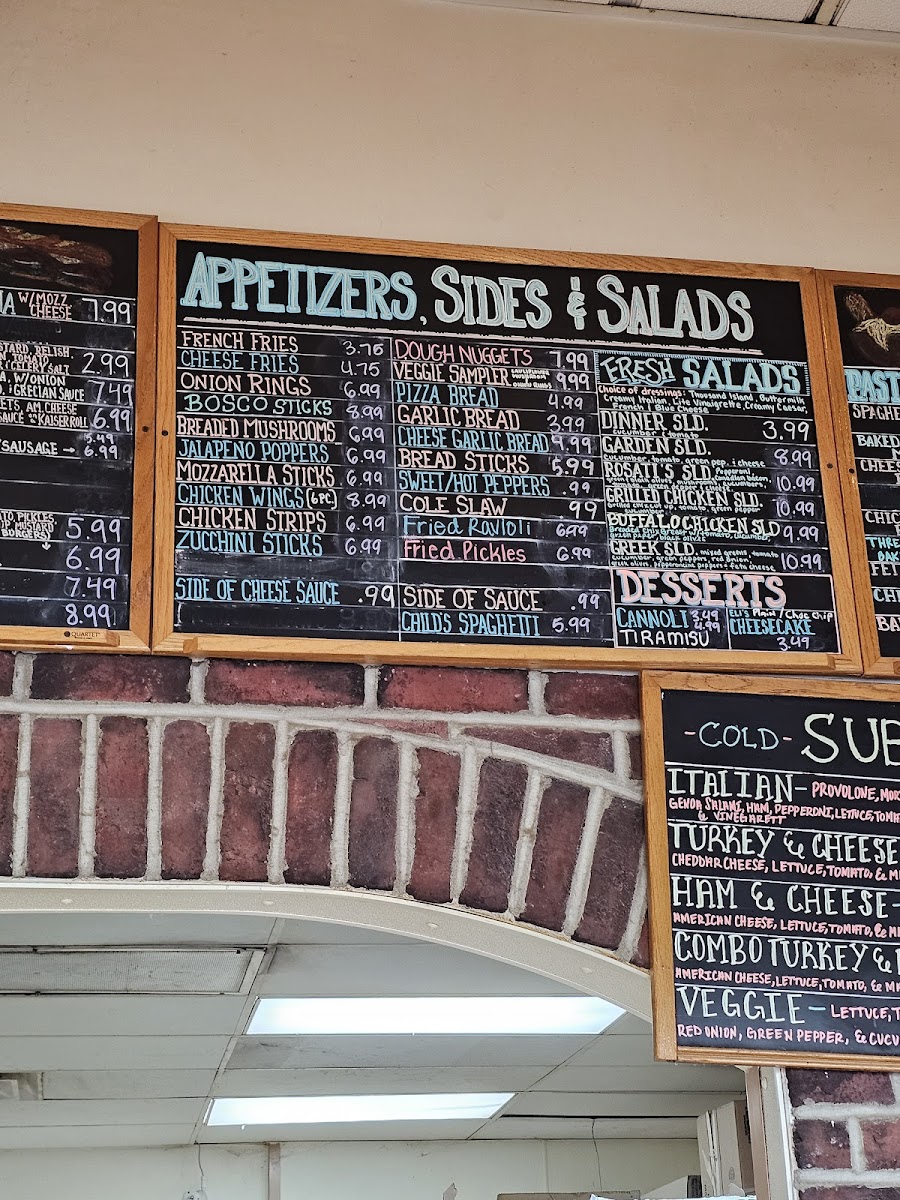 W/MOZZ
CHEESE 7.99
2.99
W/ONION
GRECIAN SAUCE 7.49
AM. CHEESE
KAISERROLL 6.99
5.49
SAUSAGE → 6.99
PICKLES
MUSTARD 5.99
BURGERS)
6.99
7.49
8.99
QUARTET
APPETIZERS, SIDES & SALADS
FRENCH FRIES 3.75
CHEESE FRIES 4.75
ONION RINGS 6.99
BOSCO STICKS 8.99
BREADED MUSHROOMS 6.99
JALAPENO POPPERS 6.99
MOZZARELLA STICKS 6.99
CHICKEN WINGS (6PC) 8.99
CHICKEN STRIPS 6.99
ZUCCHINI STICKS 6.99
SIDE OF CHEESE SAUCE .99
DOUGH NUGGETS 7.99
VEGGIE SAMPLER 9.99
PIZZA BREAD 4.99
GARLIC BREAD 3.99
CHEESE GARLIC BREAD 4.99
BREAD STICKS 5.99
SWEET/HOT PEPPERS .99
COLE SLAW .99
Fried Ravioli 6.99
Fried Pickles 6.99
SIDE OF SAUCE .99
CHILD'S SPAGHETTI 5.99
FRESH SALADS
Choice of dressings: Thousand Island, Buttermilk
Creamy Italian, Lite Vinaigrette, Creamy Caesar,
French, Blue Cheese
DINNER SLD. 3.99
cucumber & tomato
GARDEN SLD. 8.99
cucumber, tomato, green pep. & cheese
ROSATI'S SLD. Pepperoni, Canadian bacon, 10.99
green & black olives, mushrooms, cucumbers,
GRILLED CHICKEN SLD. 10.99
tomato, green pepper
BUFFALO CHICKEN SLD 9.99
tomato, cucumber,
green pepper, black olives
GREEK SLD. mixed greens, tomato 10.99
cucumber, green peppers, red onion,
greek olives, pepperoncini peppers & feta cheese
DESSERTS
CANNOLI 3.49
TIRAMISU 4.99
ELI'S Plain / Choc chip
CHEESECAKE
3.49
PAST
SPAGHE
BAKED
CHEES
CHIC
THRE
BAK
FET
CHI
BA
-COLD- SUB
ITALIAN - PROVOLONE, MOR
GENOA SALAMI, HAM, PEPPERONI, LETTUCE, TOMA
& VINEGARETT
TURKEY & CHEESE
CHEDDAR CHEESE, LETTUCE, TOMATO, & M
HAM & CHEESE-
AMERICAN CHEESE, LETTUCE, TOMATO, & MA
COMBO TURKEY &
AMERICAN CHEESE, LETTUCE, TOMATO, & MA
VEGGIE - LETTUCE, T
RED ONION, GREEN PEPPER, & CUCU